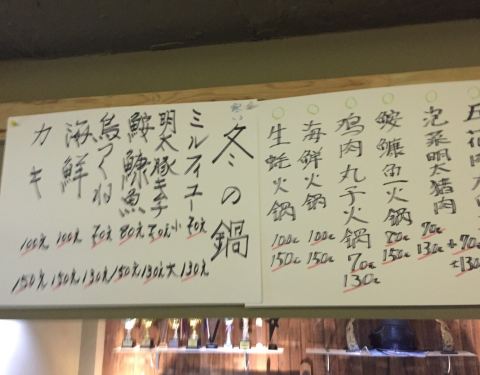 冬の鍋
ミルフィユー 70元 130元
明太豚キムチ 小70元 大130元
鮟鱇魚 80元 150元
鳥つくね 70元 130元
海鮮 100元 150元
カキ 100元 150元
五花肉
泡菜明太猪肉 70元 130元
鮟鱇魚火锅 80元 150元
鸡肉丸子火锅 70元 130元
海鮮火锅 100元 150元
生蚝火锅 100元 150元